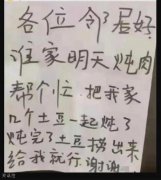 各位邻居好
谁家明天炖肉
帮个忙 把我家
几个土豆一起炖了
炖完了土豆捞出来
给我就行 谢谢